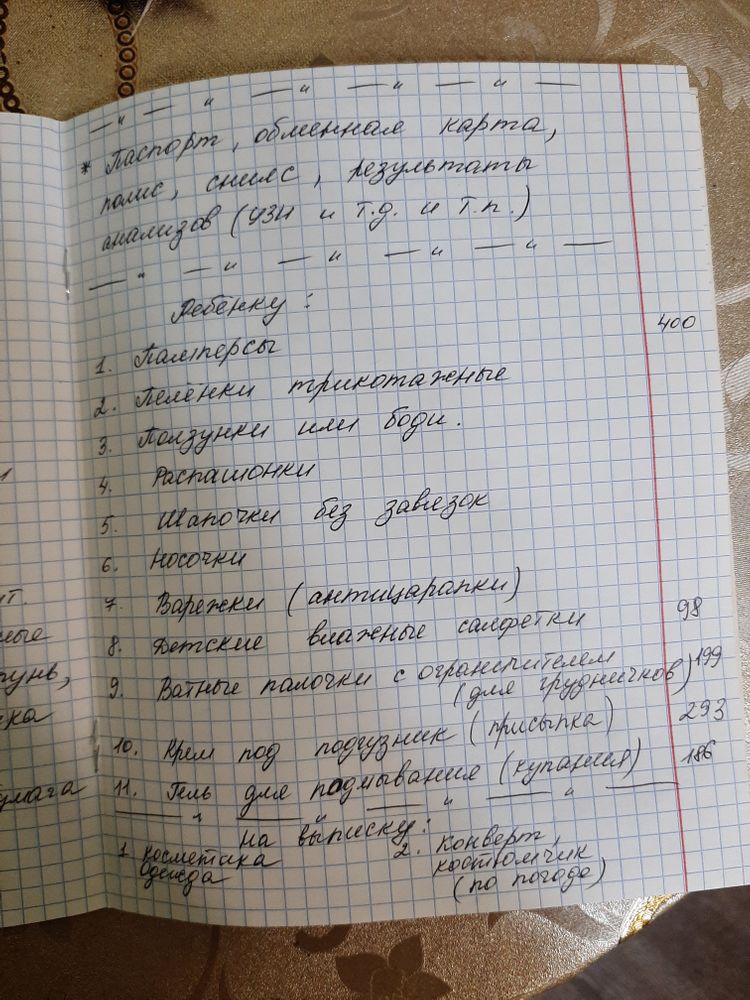 — " — " — " — " — " —
* Паспорт, обменная карта,
полис, снилс, результаты
анализов (УЗИ и т.д. и т.п.)
— " — " — " — " — " —
Ребёнку:
1. Памперсы 400
2. Пелёнки трикотажные
3. Ползунки или боди.
4. Распашонки
5. Шапочки без завязок
6. Носочки
7. Варежки (антицарапки)
8. Детские влажные салфетки 98
9. Ватные палочки с ограничителем 199
(для грудничков)
10. Крем под подгузник (присыпка) 293
11. Гель для подмывания (купания) 186
— " — " — " — " —
На выписку:
1 косметика
одежда
2. конверт,
костюмчик
(по погоде)
ит.
ные
унь,
ка
умага